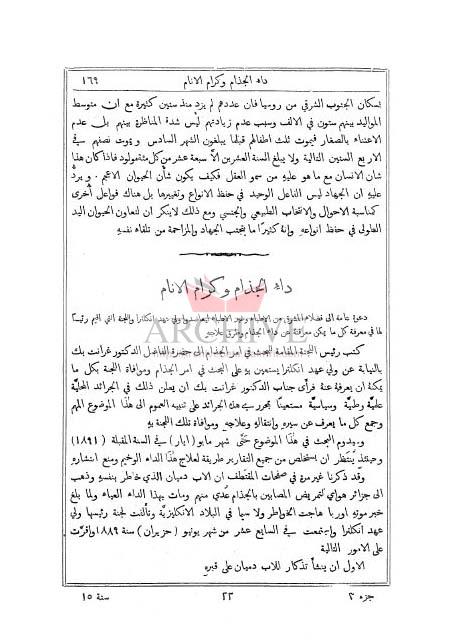 داء الجذام وكرام الانام
١٦٩
فسكان الجنوب الشرقي من روسيا فان عددهم لم يزد منذ سنين كثيرة مع ان متوسط
المواليد بينهم ستون في الالف وسبب عدم زيادتهم ليس شدة المناظرة بينهم بل عدم
الاعتناء بالصغار فيموت ثلث اطفالهم قبلما يبلغون الشهر السادس ويموت نصفهم في
الاربع السنين التالية ولا يبلغ السنة العشرين الا سبعة عشر من كل مئة مولود فاذا كان هذا
شان الانسان مع ما هو عليه من سمو العقل فكيف يكون شأن الحيوان الاعجم . ويرد
عليه ان الجهاد ليس الفاعل الوحيد في حفظ الانواع وتغييرها بل هناك فواعل أخرى
كمناسبة الاحوال والانتخاب الطبيعي والجنسي ومع ذلك لا ينكر ان لتعاون الحيوان اليد
الطولى في حفظ انواعه وانه كثيرًا ما يتجنب الجهاد والمزاحمة من تلقاء نفسه
داء الجذام وكرام الانام
دعوة عامة الى فضلاء المشرق من الاطباء وغير الاطباء ليعاضدوا ولي عهد انكلترا واللجنة التي اقيم رئيسًا
لها في معرفة كل ما يمكن معرفته عن داء الجذام وطرق علاجه
كتب رئيس اللجنة المقامة للبحث في امر الجذام الى حضرة الفاضل الدكتور غرانت بك
بالنيابة عن ولي عهد انكلترا يستعين به على البحث في امر الجذام وموافاة اللجنة بكل ما
يمكنه ان يعرفه عنه فرأى جناب الدكتور غرانت بك ان يعلن ذلك في الجرائد المحلية
علمية وطبية وسياسية مستعينًا بمحرري هذه الجرائد على تنبيه العموم الى هذا الموضوع المهم
وجمع كل ما يعرف عن سيره وانتقاله وعلاجه وموافاة تلك اللجنة به
ويدوم البحث في هذا الموضوع حتى شهر مايو (ايار) في السنة المقبلة (١٨٩١)
وحينئذ يُنتظر ان يستخلص من جميع التقارير طريقة لعلاج هذا الداء الوخيم ومنع انتشاره
وقد ذكرنا غير مرة في صفحات المقتطف ان الاب دميان الذي خاطر بنفسه وذهب
الى جزائر هواي لتمريض المصابين بالجذام عُدي منهم ومات بهذا الداء العياء ولما بلغ
خبر موته اوربا هاجت الخواطر ولا سيما في البلاد الانكليزية وتألفت لجنة رئيسها ولي
عهد انكلترا واجتمعت في السابع عشر من شهر يونيو (حزيران) سنة ١٨٨٩ واقرّت
على الامور التالية
الاول ان ينشأ تذكار للاب دميان على قبره
جزء ٣
٢٢
سنة ١٥
ARCHIVE